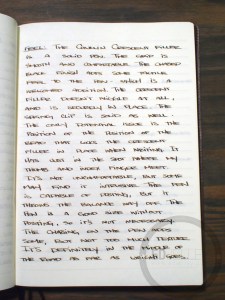 FEEL: THE CONKLIN CRESCENT FILLER
IS A SOLID PEN. THE GRIP IS
SMOOTH AND COMFORTABLE. THE CHASED
BLACK FINISH ADDS SOME TACTILE
FEEL TO THE PEN WHICH IS A
WELCOMED ADDITION. THE CRESCENT
FILLER DOESN'T RATTLE AT ALL,
AND IS SECURELY IN PLACE. THE
SPRING CLIP IS SOLID AS WELL.
THE ONLY POTENTIAL ISSUE IS THE
POSITION OF THE POSITION OF THE
BEAD THAT LOCKS THE CRESCENT
FILLER IN PLACE WHEN WRITING. IT
HITS JUST IN THE SPOT WHERE MY
THUMB AND INDEX FINGER MEET.
IT'S NOT UNCOMFORTABLE, BUT SOME
MAY FIND IT INTRUSIVE. THE PEN
IS CAPABLE OF POSTING, BUT IT
THROWS THE BALANCE WAY OFF. THE
PEN IS A GOOD SIZE WITHOUT
POSTING, SO IT'S NOT NECESSARY.
THE CHASING ON THE PEN ADDS
SOME, BUT NOT TOO MUCH TEXTURE.
IT'S DEFINITELY IN THE MIDDLE OF
THE ROAD AS FAR AS WEIGHT GOES.